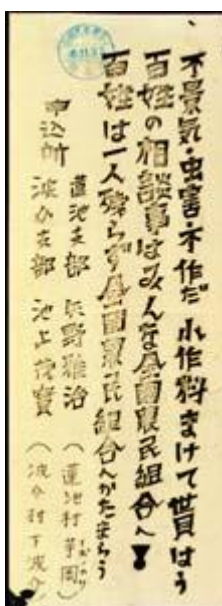 不景気・虫害・不作だ 小作料まけて貰はう
百姓の相談事はみんな全国農民組合へ！
百姓は一人残らず全国農民組合へかたまらう
申込所
蓮池支部 矢野雅治 （蓮池村 芽岡）
波介支部 池上茂實 （波介村下波介）